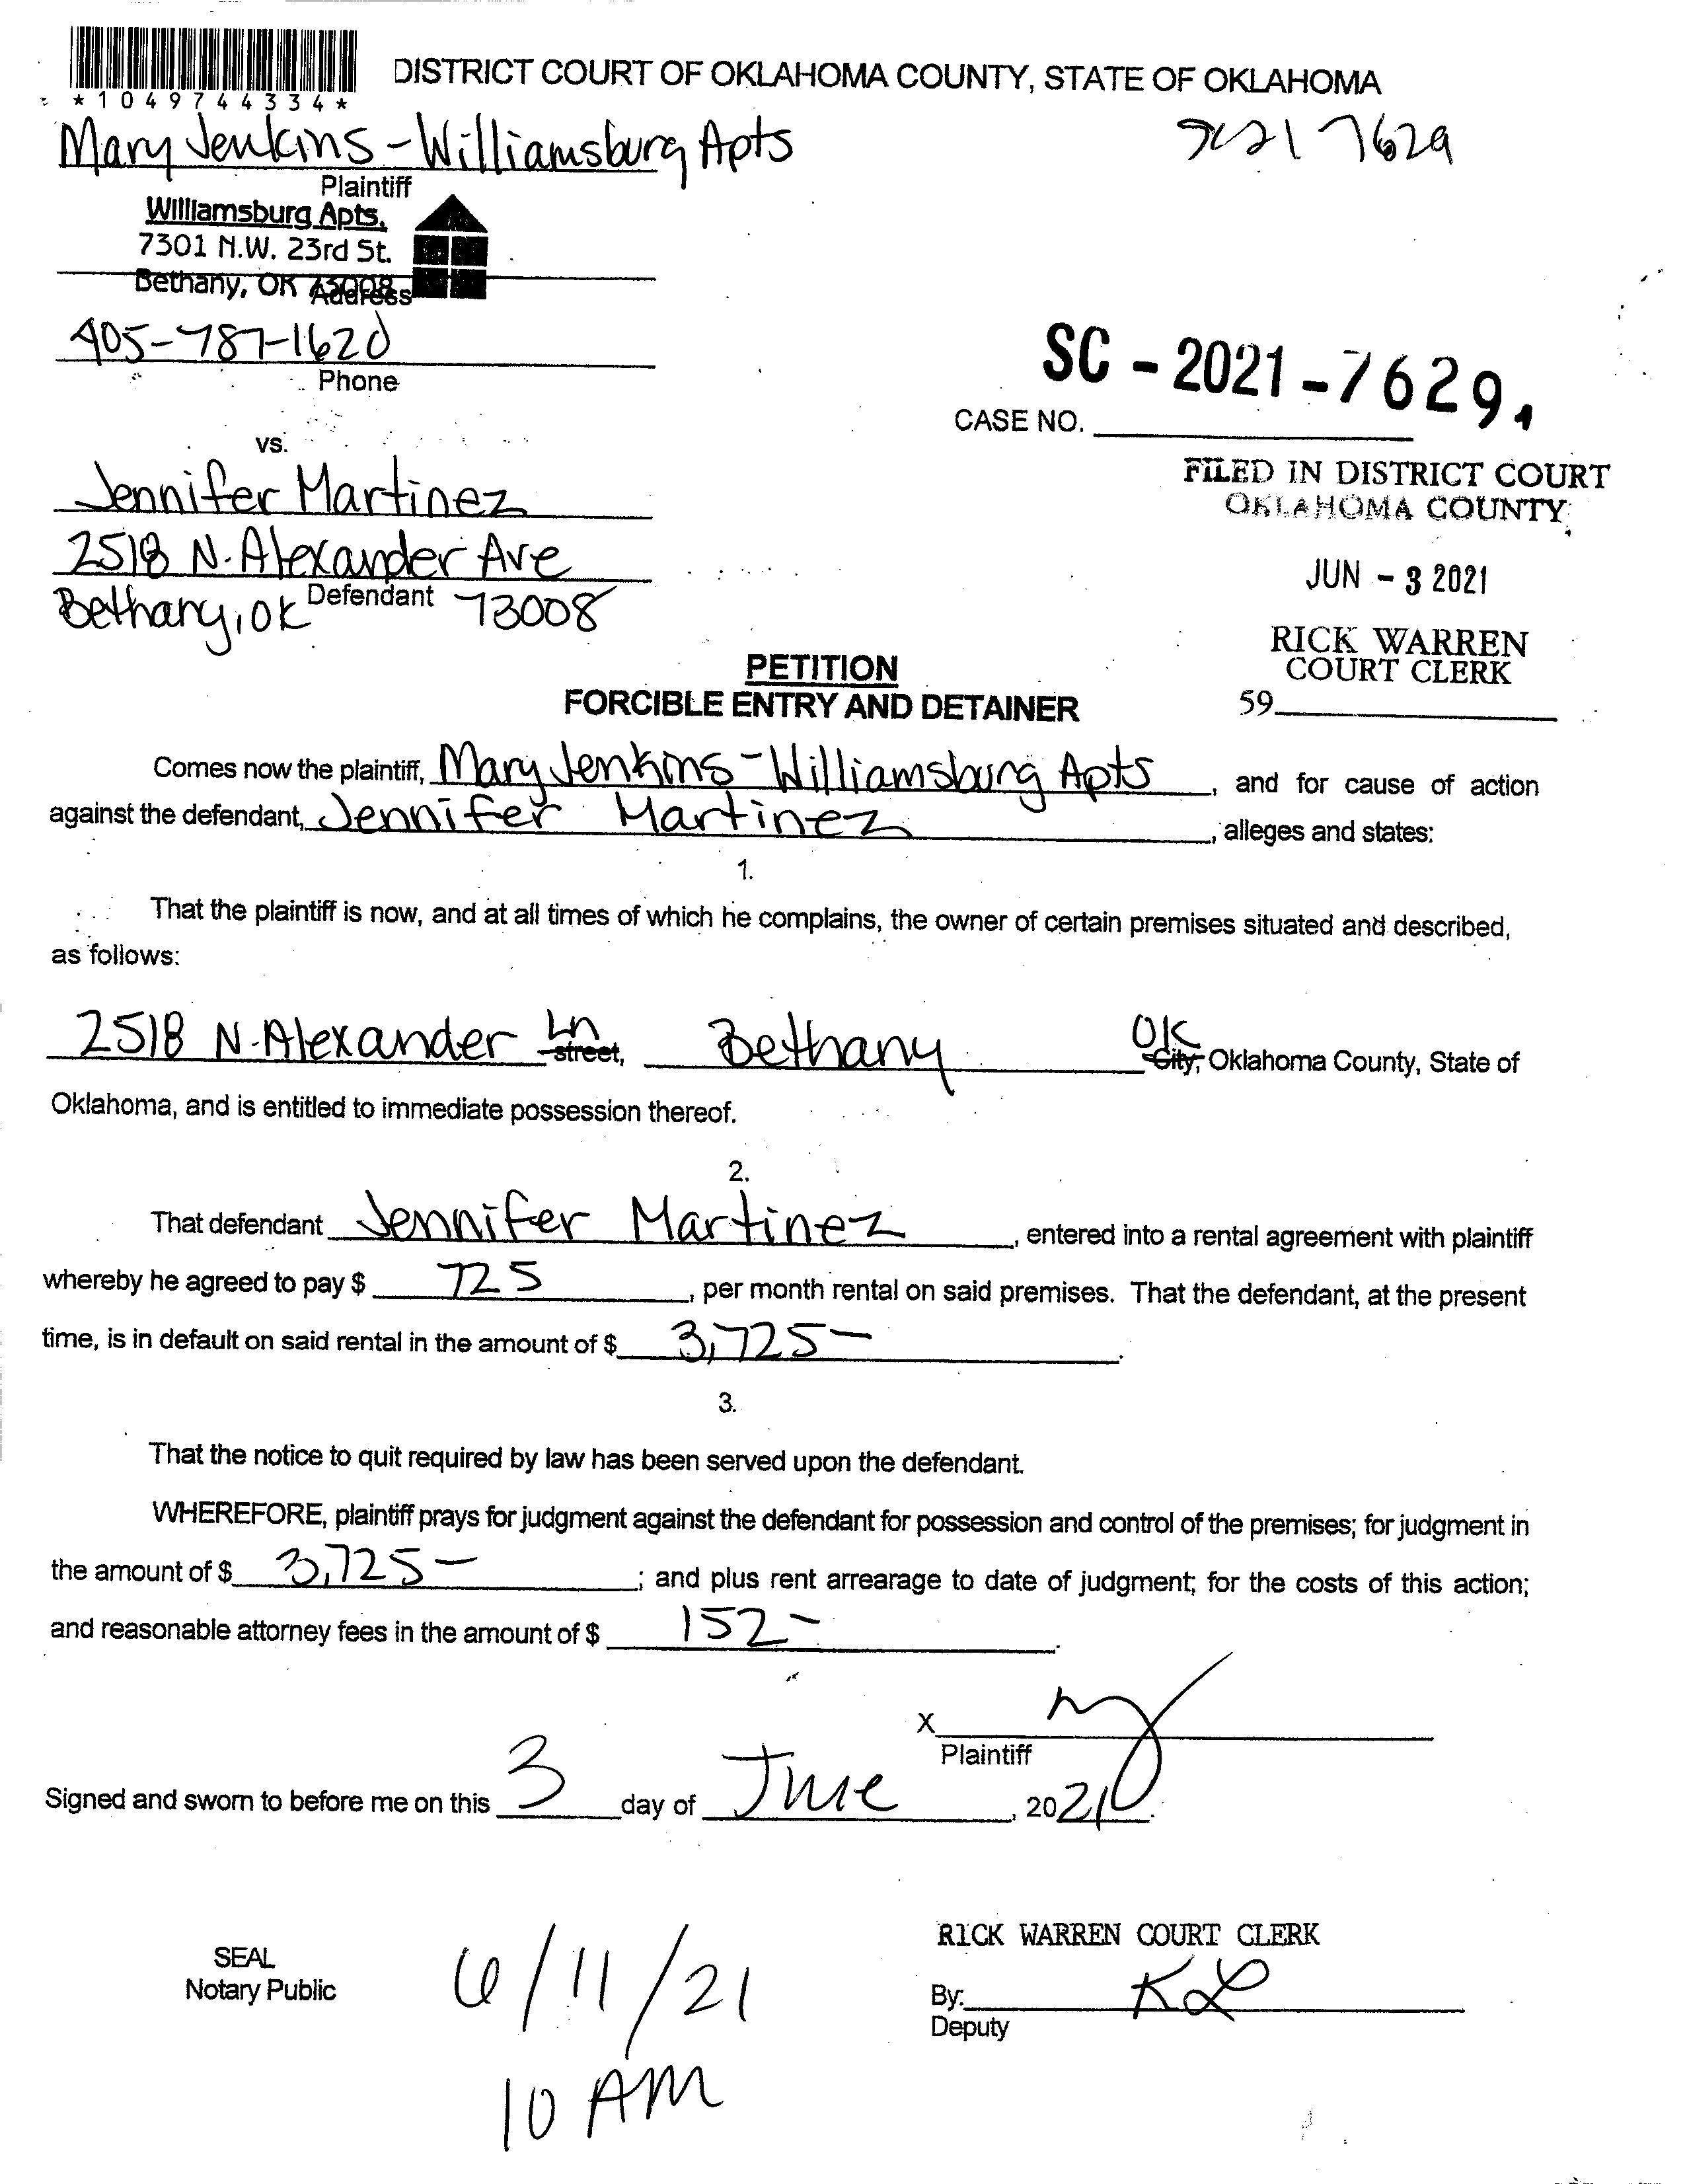 *1049744334*
DISTRICT COURT OF OKLAHOMA COUNTY, STATE OF OKLAHOMA
Mary Jenkins - Williamsburg Apts
7629
Plaintiff
Williamsburg Apts.
7301 N.W. 23rd St.
Bethany, OK 73008
Address
405-787-1620
Phone
SC - 2021 - 7629
CASE NO.
vs.
Jennifer Martinez
2518 N. Alexander Ave
Defendant
Bethany, OK 73008
FILED IN DISTRICT COURT
OKLAHOMA COUNTY
JUN - 3 2021
RICK WARREN
COURT CLERK
59
PETITION
FORCIBLE ENTRY AND DETAINER
Comes now the plaintiff, Mary Jenkins - Williamsburg Apts, and for cause of action
against the defendant, Jennifer Martinez, alleges and states:
1.
That the plaintiff is now, and at all times of which he complains, the owner of certain premises situated and described,
as follows:
2518 N. Alexander Ln street, Bethany OK City, Oklahoma County, State of
Oklahoma, and is entitled to immediate possession thereof.
2.
That defendant Jennifer Martinez, entered into a rental agreement with plaintiff
whereby he agreed to pay $ 725, per month rental on said premises. That the defendant, at the present
time, is in default on said rental in the amount of $ 3,725-.
3.
That the notice to quit required by law has been served upon the defendant.
WHEREFORE, plaintiff prays for judgment against the defendant for possession and control of the premises; for judgment in
the amount of $ 3,725-; and plus rent arrearage to date of judgment; for the costs of this action;
and reasonable attorney fees in the amount of $ 152-.
X
Plaintiff
Signed and sworn to before me on this 3 day of June, 2021.
RICK WARREN COURT CLERK
SEAL
Notary Public
6/11/21
10 AM
By: KL
Deputy